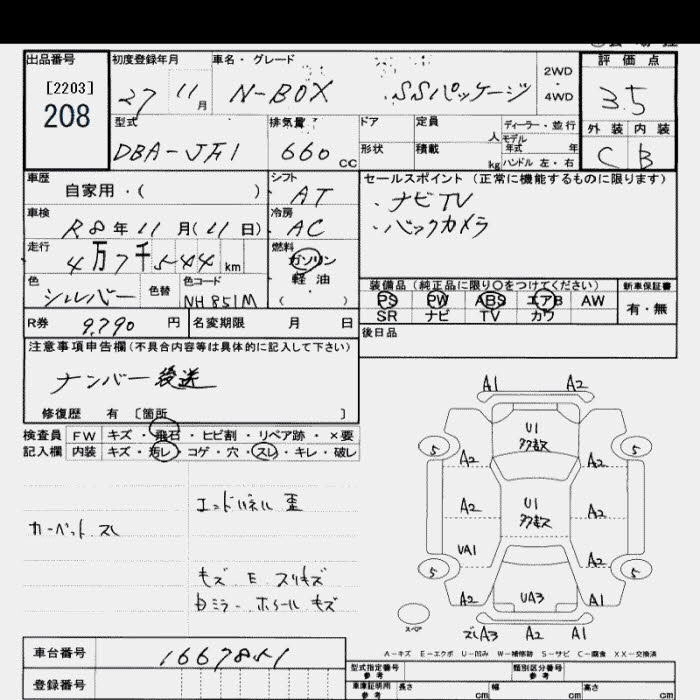 出品番号
[2203]
208
初度登録年月
27 11月
車名・グレード
N-BOX SSパッケージ
2WD
4WD
評価点
3.5
外装 内装
C B
型式
DBA-JF1
排気量
660 cc
ドア
形状
定員 人
積載 kg
ディーラー・並行
モデル年式 年
ハンドル 左・右
車歴
自家用・( )
シフト
AT
車検
R8年11月(11日)
冷房
AC
走行
4万7千544 km
燃料
ガソリン
軽油
( )
色
シルバー
色替
色コード
NH851M
R券
9,790 円
名変期限 月 日
セールスポイント (正常に機能するものに限ります)
・ナビTV
・バックカメラ
装備品(純正品に限り〇をつけてください)
PS PW ABS エアB AW
SR ナビ TV カワ
新車保証書
有・無
後日品
注意事項申告欄(不具合内容等は具体的に記入して下さい)
ナンバー後送
修復歴 有 〔箇所 〕
検査員 FW キズ・飛石・ヒビ割・リペア跡・×要
記入欄 内装 キズ・汚レ・コゲ・穴・スレ・キレ・破レ
エンドパネル 歪
カーペット スレ
キズ E スリキズ
ホイール キズ
A1 A2
U1
多数
5 5
A2 A2
A2 A2
U1
多数
UA1
A2
5 5
A2 UA3 A1
スペア
A3 A2 A1
A－キズ E－エクボ U－凹み W－補修跡 S－サビ C－腐食 XX－交換済
車台番号
1667851
登録番号
型式指定番号
参考
類別区分番号
参考
車庫証明用
参考
長さ cm
幅 cm
高さ cm